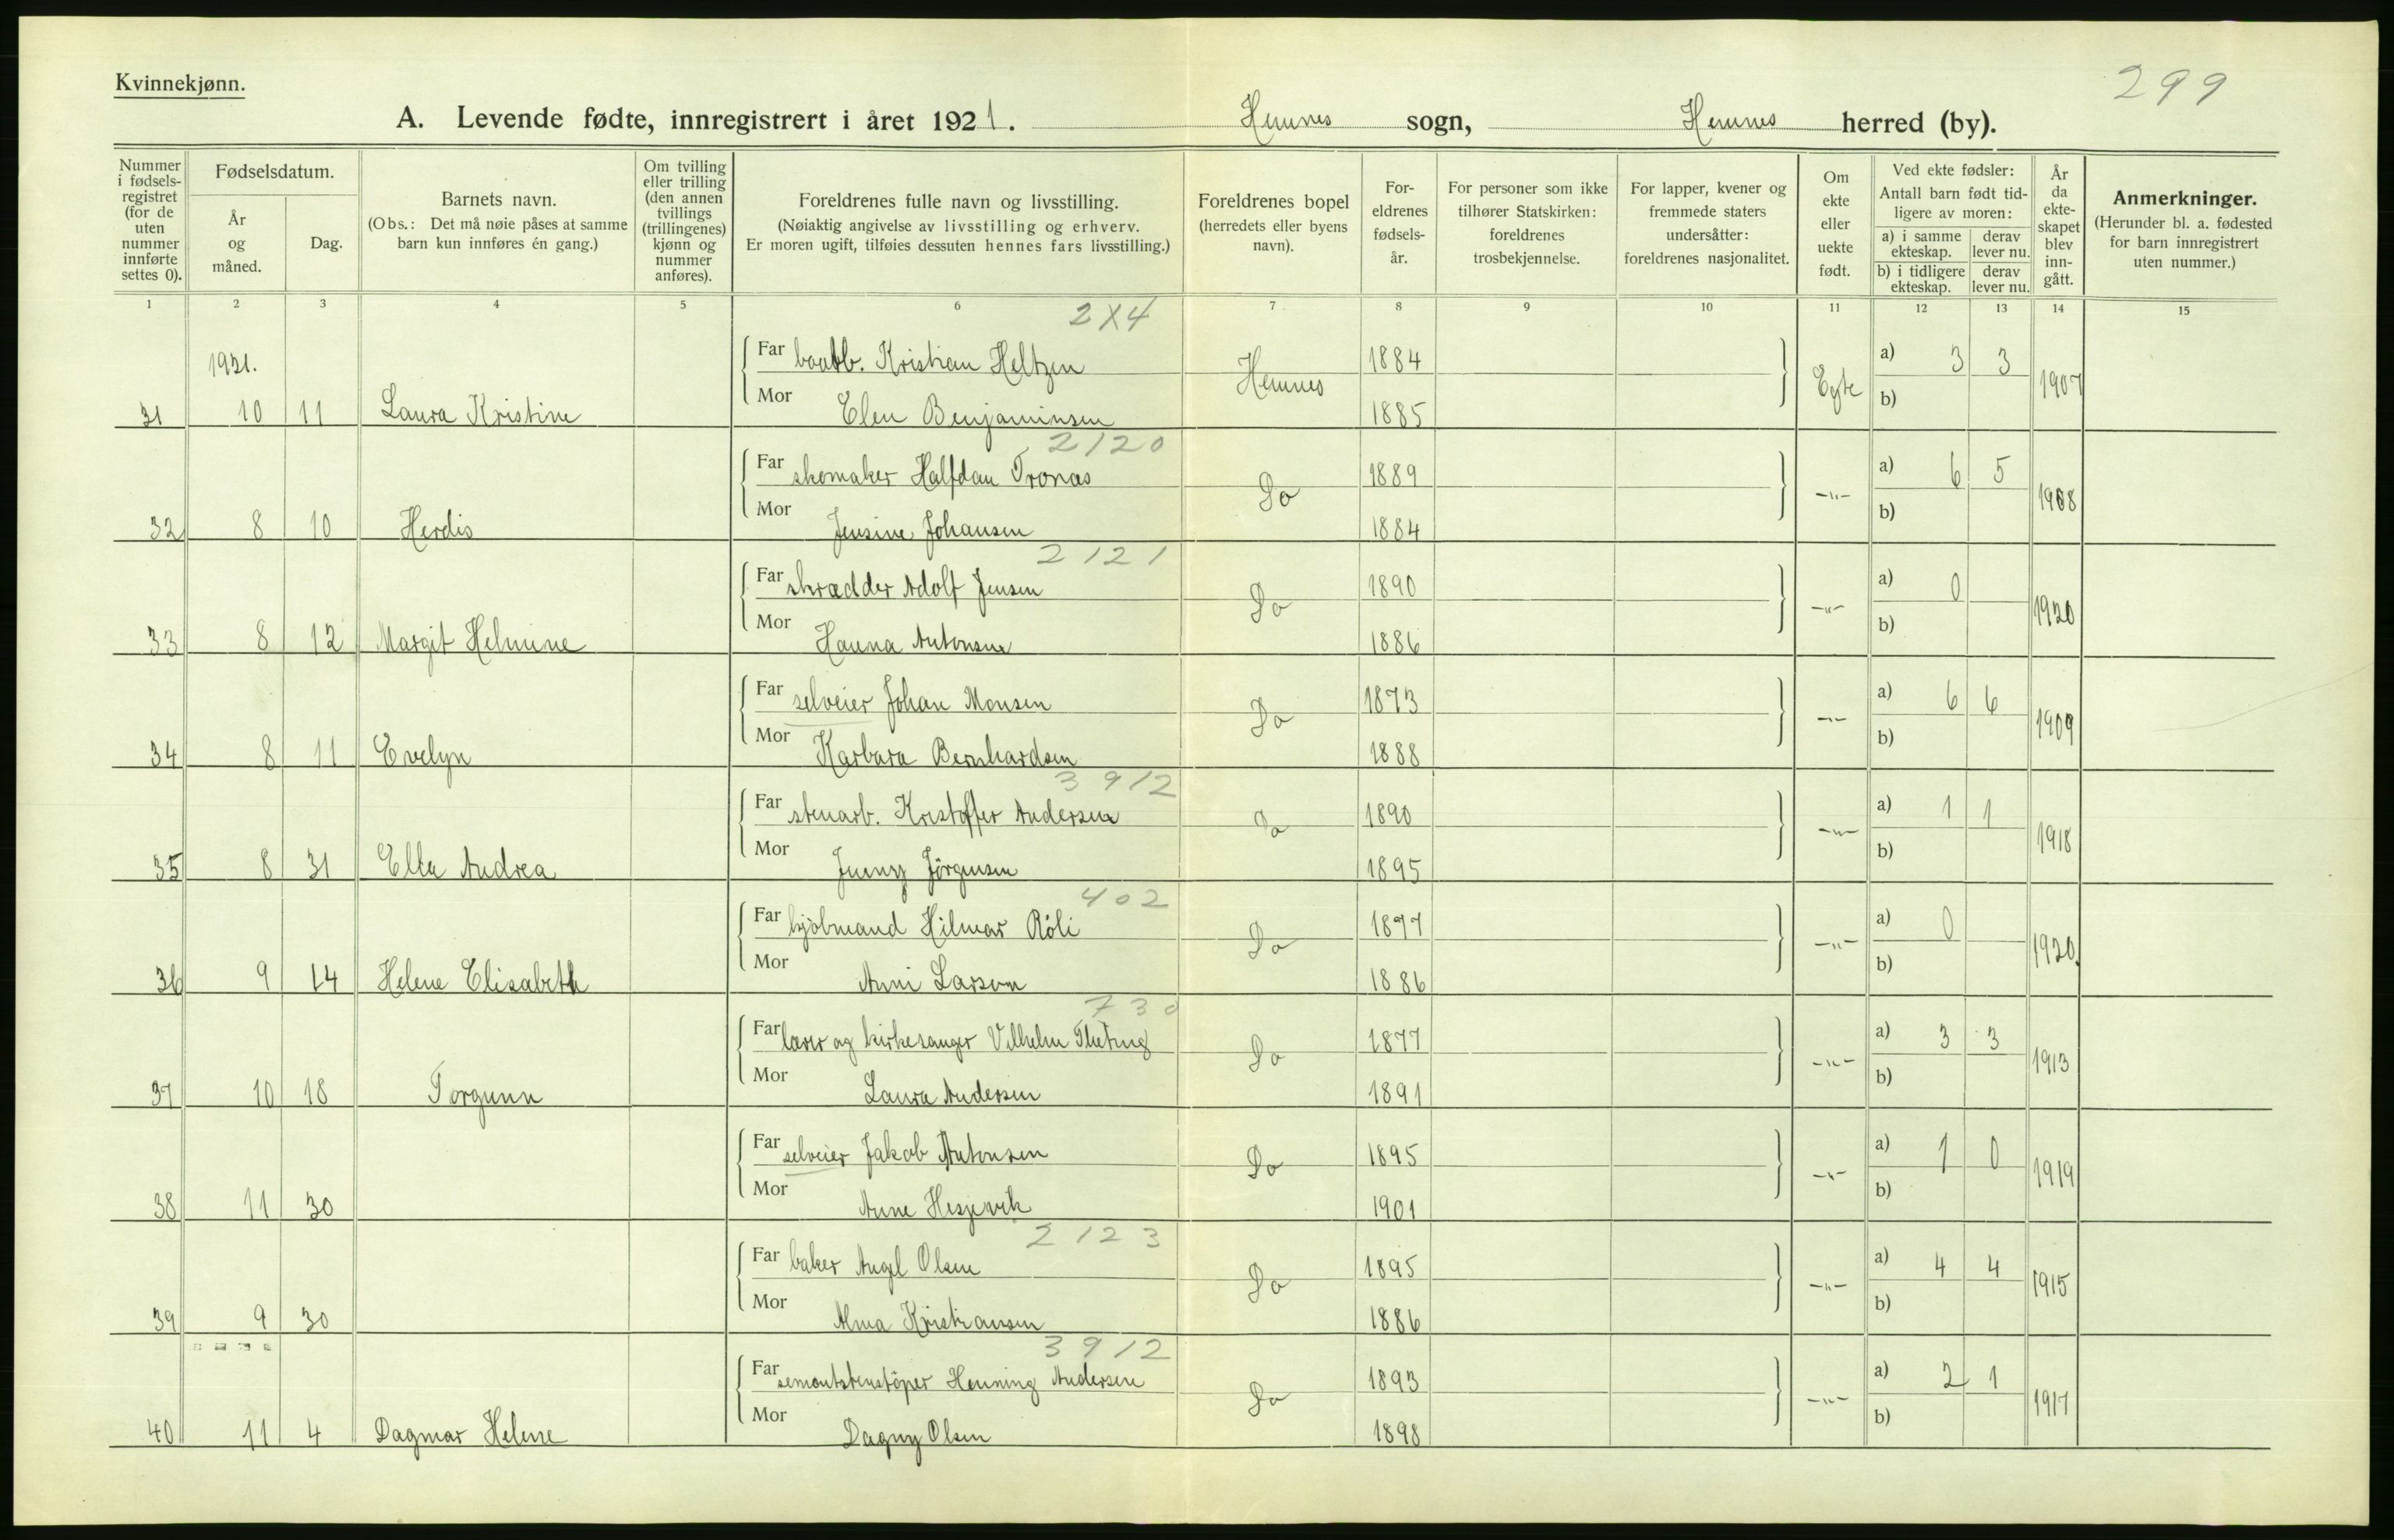 Kvinnekjønn.
299
A. Levende fødte, innregistrert i året 1921. Hemnes sogn, Hemnes herred (by).
Nummer i fødsels-registret (for de uten nummer innførte settes 0).
Fødselsdatum.
År og måned.
Dag.
Barnets navn.
(Obs.: Det må nøie påses at samme barn kun innføres én gang.)
Om tvilling eller trilling (den annen tvillings (trillingenes) kjønn og nummer anføres).
Foreldrenes fulle navn og livsstilling.
(Nøiaktig angivelse av livsstilling og erhverv.
Er moren ugift, tilføies dessuten hennes fars livsstilling.)
Foreldrenes bopel (herredets eller byens navn).
For-eldrenes fødsels-år.
For personer som ikke tilhører Statskirken: foreldrenes trosbekjennelse.
For lapper, kvener og fremmede staters undersåtter: foreldrenes nasjonalitet.
Om ekte eller uekte født.
Ved ekte fødsler: Antall barn født tid-ligere av moren:
a) i samme ekteskap. derav lever nu.
b) i tidligere ekteskap. derav lever nu.
År da ekte-skapet blev inn-gått.
Anmerkninger.
(Herunder bl. a. fødested for barn innregistrert uten nummer.)
1 2 3 4 5 6 7 8 9 10 11 12 13 14 15
2X4
1921.
Far Kristian Heltzen Hemnes 1884 Egte a) 3 3 1907
31 10 11 Laura Kristine Mor Elen Benjaminsen 1885 b)
2120
Far skomaker Halfdan Tronas Do 1889 -"- a) 6 5 1908
32 8 10 Herdis Mor Jensine Johansen 1884 b)
2121
Far skrædder Adolf Jensen Do 1890 -"- a) 0 1920
33 8 12 Margit Helmine Mor Hanna Antonsen 1886 b)
Far selveier Johan Monsen Do 1873 -"- a) 6 6 1909
34 8 11 Evelyn Mor Karbara Bernhardsen 1888 b)
3912
Far stenarb. Kristoffer Andersen Do 1890 -"- a) 1 1 1918
35 8 31 Ella Andrea Mor Jenny Jörgensen 1895 b)
402
Far kjöbmand Hilmar Röli Do 1897 -"- a) 0 1920.
36 9 14 Helene Elisabeth Mor Anni Larson 1886 b)
730
Far lærer og kirkesanger Vilhelm Do 1877 -"- a) 3 3 1913
37 10 18 Torgunn Mor Laura Andersen 1891 b)
Far selveier Jakob Antonsen Do 1895 -"- a) 1 0 1919
38 11 30 Mor Anne Hesjevik 1901 b)
2123
Far baker Angel Olsen Do 1895 -"- a) 4 4 1915
39 9 30 Mor Alma Kristiansen 1886 b)
3912
Far sementstenstöper Henning Andersen Do 1893 -"- a) 2 1 1917
40 11 4 Dagmar Helene Mor Dagny Olsen 1898 b)